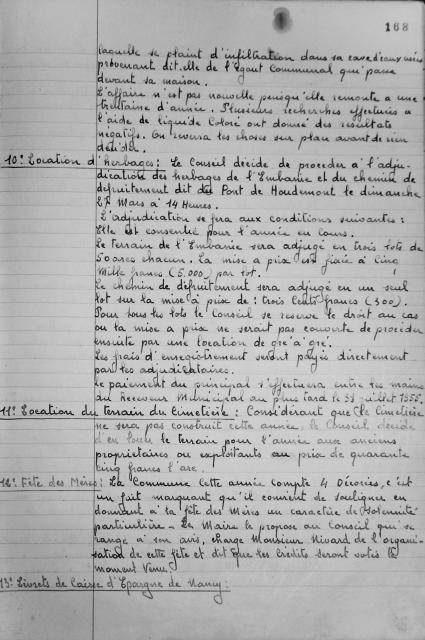 168
laquelle se plaint d'infiltration dans sa cave d'eaux usées
provenant dit-elle de l'Egout Communal qui passe
devant sa maison.
L'affaire n'est pas nouvelle puisqu'elle remonte a une
trentaine d'année. Plusieurs recherches effectuées a
l'aide de liquide coloré ont donné des résultats
négatifs. On reverra les choses sur plan avant de rien
décider.
10° Location d'herbages: Le Conseil décide de procéder a l'adju-
dication des herbages de l'Embanie et du chemin de
défruitement dit du Pont de Houdemont le dimanche
27 Mars à 14 Heures.
L'adjudication se fera aux conditions suivantes :
Elle est consentie pour l'année en cours.
Le terrain de l'Embanie sera adjugé en trois lots de
50 ares chacun. La mise a prix est fixée à Cinq
Mille francs (5.000) par lot.
Le chemin de défruitement sera adjugé en un seul
lot sur la mise à prix de : trois Cents francs (300).
Pour tous les lots le Conseil se reserve le droit au cas
ou la mise a prix ne serait pas couverte de procéder
ensuite par une location de gré a gré.
Les frais d'enregistrement seront payés directement
par les adjudicataires.
Le paiement du principal s'effectuera entre les mains
du Receveur Municipal au plus tard le 31 juillet 1955.
11° Location du terrain du Cimetière : Considérant que le Cimetière
ne sera pas construit cette année, le Conseil décide
d'en louer le terrain pour l'année aux anciens
propriétaires ou exploitants au prix de quarante
cinq francs l'are.
12° Fête des Mères: La Commune cette année compte 4 Décorées, c'est
un fait marquant qu'il convient de souligner en
donnant à la fête des Mères un caractère de solemnité
particulière - Le Maire le propose au Conseil qui se
range à son avis, charge Monsieur Nivard de l'organi-
sation de cette fête et dit que les Crédits seront votés le
moment venu.
13° Livrets de Caisse d'Epargne de Nancy :